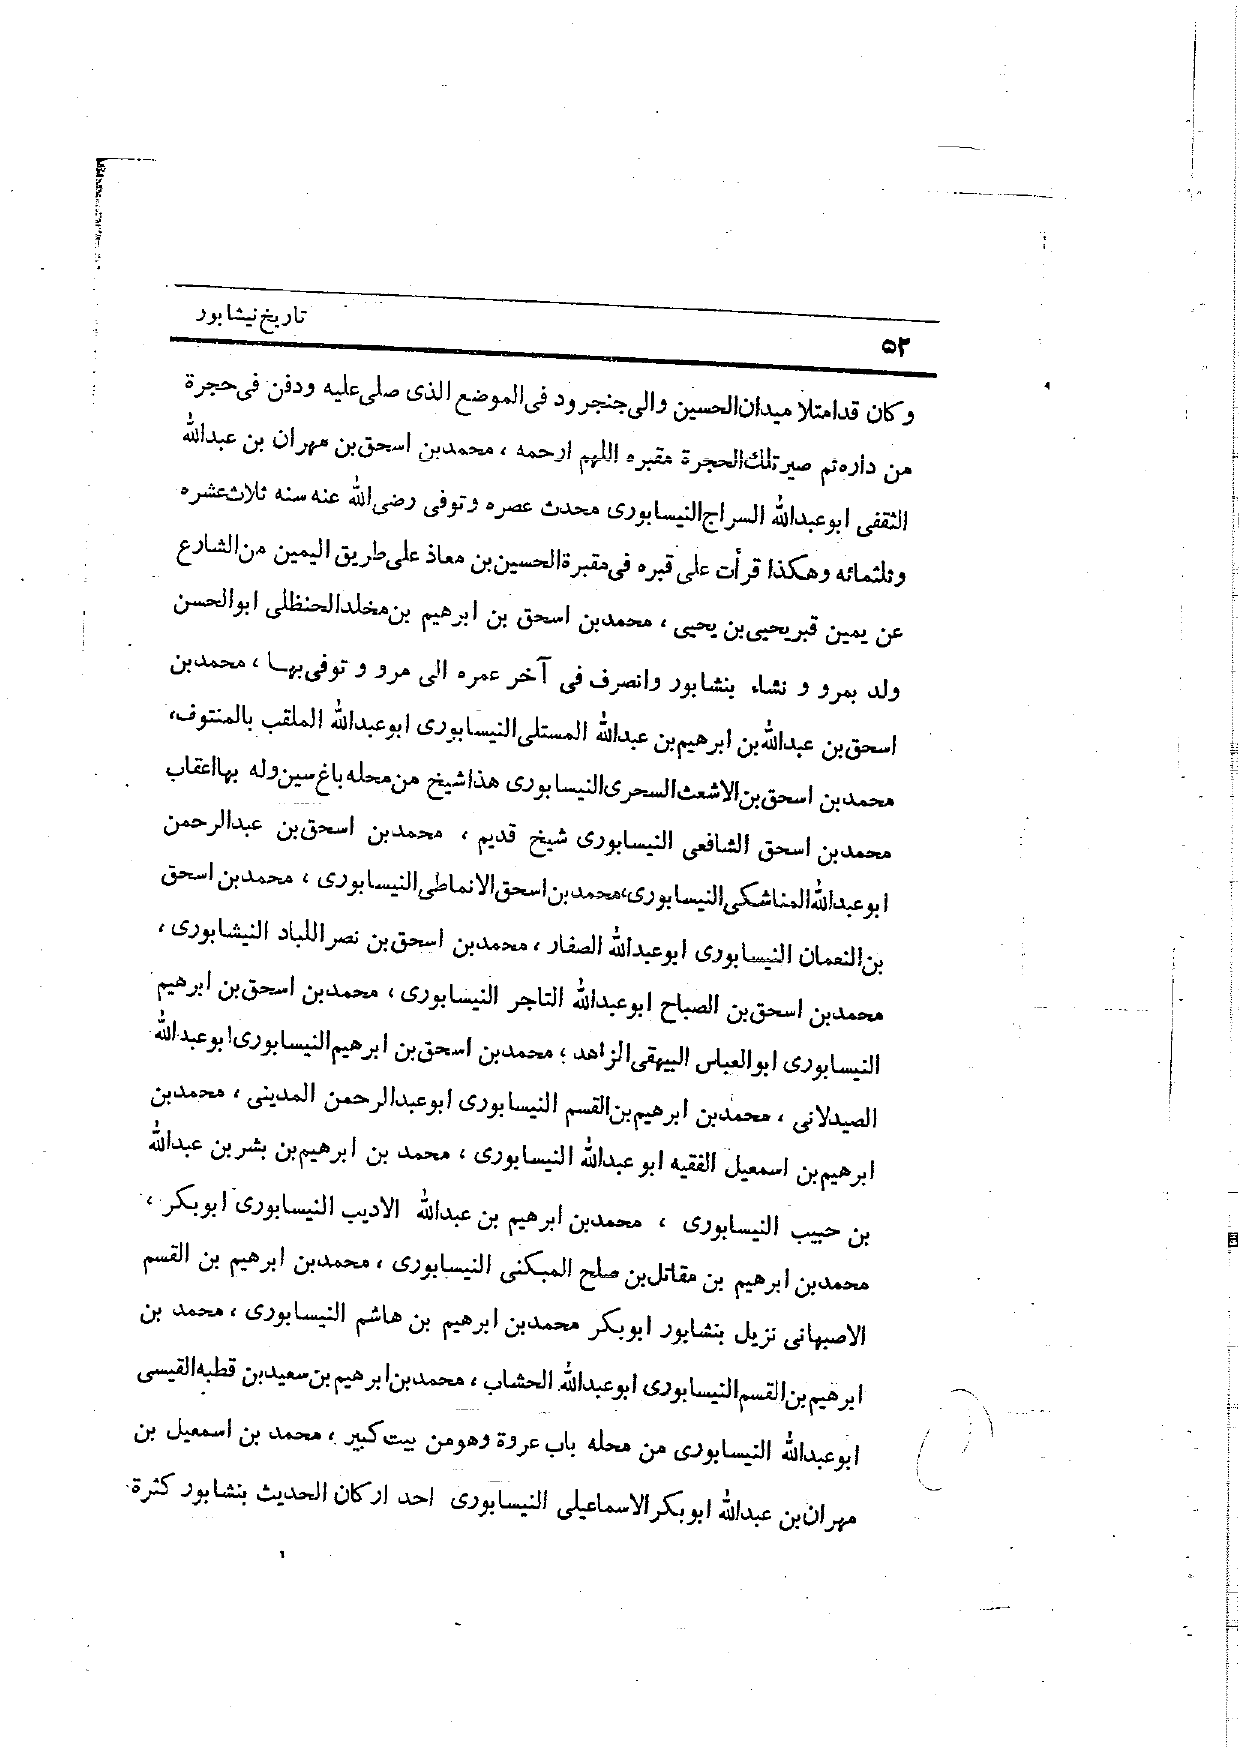 تاریخ نیشابور
۵۳
وکان قدامتلا میدان‌الحسین والی‌جنجرود فی‌الموضع الذی صلی‌علیه ودفن فی‌حجرة
من داره‌ثم صیرتلك‌الحجرة مقبره اللهم ارحمه ، محمدبن اسحق‌بن مهران بن عبدالله
الثقفی ابوعبدالله السراج‌النیسابوری محدث عصره وتوفی رضی‌الله عنه سنه ثلاث‌عشره
وثلثمائه وهکذا قرأت علی قبره فی‌مقبرةالحسین‌بن معاذ علی‌طریق الیمین من‌الشارع
عن یمین قبریحیی‌بن یحیی ، محمدبن اسحق بن ابرهیم بن‌مخلدالحنظلی ابوالحسن
ولد بمرو و نشاء بنشابور وانصرف فی آخر عمره الی مرو و توفی‌بها ، محمدبن
اسحق‌بن عبدالله‌بن ابرهیم‌بن عبدالله المستلی‌النیسابوری ابوعبدالله الملقب بالمنتوف،
محمدبن اسحق‌بن‌الاشعث‌السحری‌النیسابوری هذاشیخ من‌محله‌باغ‌سین‌وله بهااعقاب
محمدبن اسحق الشافعی النیسابوری شیخ قدیم ، محمدبن اسحق‌بن عبدالرحمن
ابوعبدالله‌المناشکی‌النیسابوری،محمدبن‌اسحق‌الانماطی‌النیسابوری ، محمدبن اسحق
بن‌النعمان النیسابوری ابوعبدالله الصفار ، محمدبن اسحق‌بن نصراللباد النیشابوری ،
محمدبن اسحق‌بن الصباح ابوعبدالله التاجر النیسابوری ، محمدبن اسحق‌بن ابرهیم
النیسابوری ابوالعباس البیهقی‌الزاهد ؛ محمدبن اسحق‌بن ابرهیم‌النیسابوری‌ابوعبدالله
الصیدلانی ، محمدبن ابرهیم‌بن‌القسم النیسابوری ابوعبدالرحمن المدینی ، محمدبن
ابرهیم‌بن اسمعیل الفقیه ابو عبدالله النیسابوری ، محمد بن ابرهیم‌بن بشربن عبدالله
بن حبیب النیسابوری ، محمدبن ابرهیم بن عبدالله الادیب النیسابوری ابوبکر ،
محمدبن ابرهیم بن مقاتل‌بن صلح المبکنی النیسابوری ، محمدبن ابرهیم بن القسم
الاصبهانی نزیل بنشابور ابوبکر محمدبن ابرهیم بن هاشم النیسابوری ، محمد بن
ابرهیم‌بن‌القسم‌النیسابوری ابوعبدالله الحشاب ، محمدبن‌ابرهیم‌بن‌سعیدبن قطبه‌القیسی
ابوعبدالله النیسابوری من محله باب عروة وهومن بیت‌کبیر ، محمد بن اسمعیل بن
مهران‌بن عبدالله ابوبکرالاسماعیلی النیسابوری احد ارکان الحدیث بنشابور کثرة